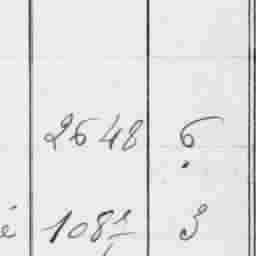 2648 6
é 108 3